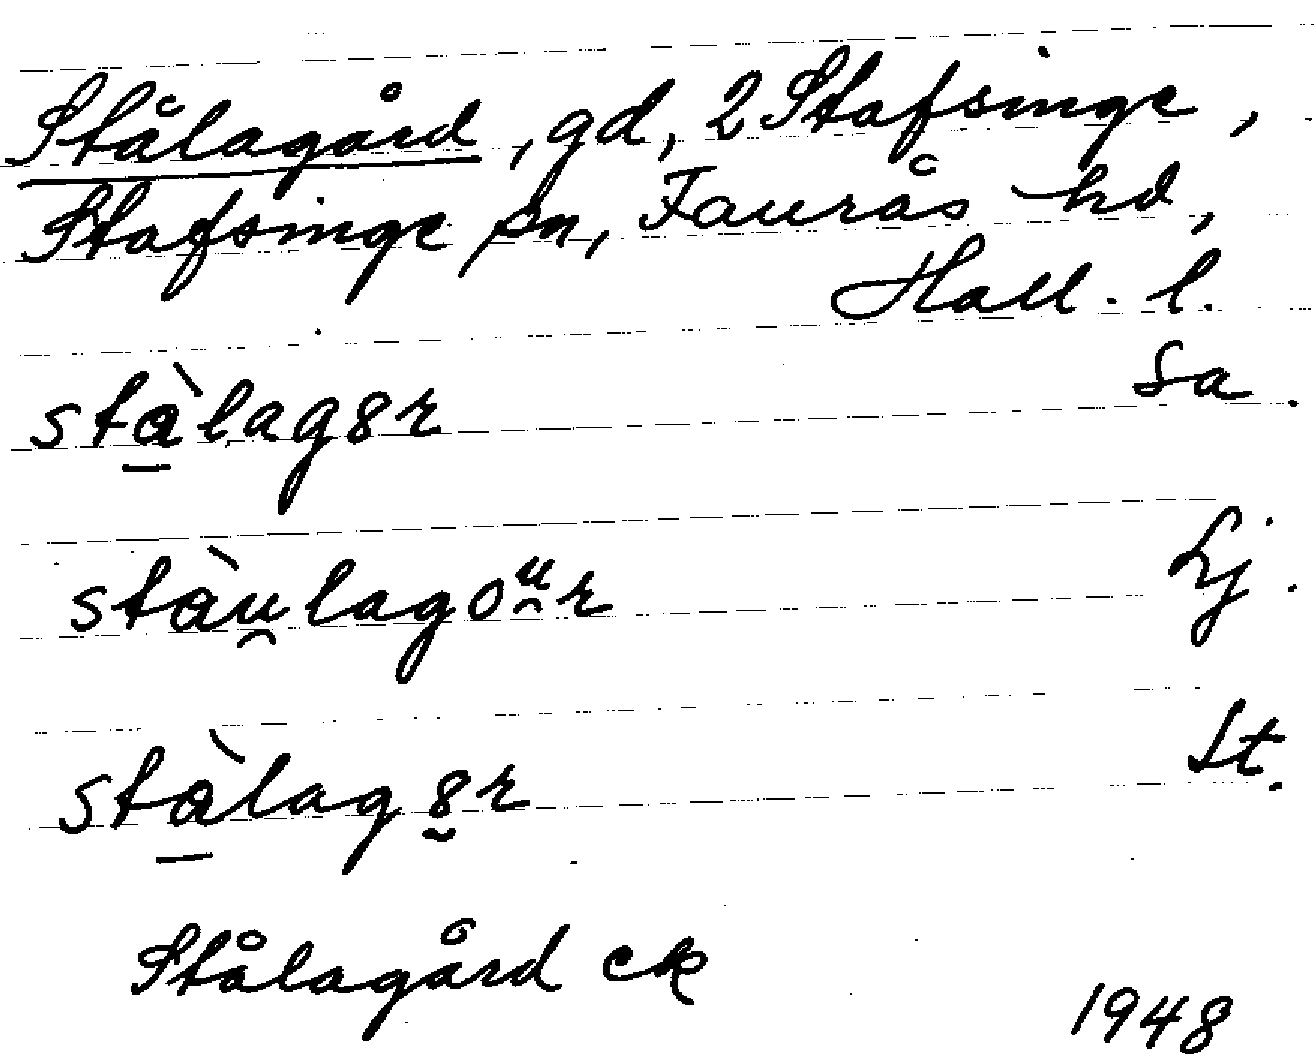 Stålagård, gd, 2 Stafsinge,
Stafsinge sn, Faurås hd,
Hall. l.
stàlag8r Sa.
stàu̯lagou̯r Lj.
stàlag8̮r St.
Stålagård ek
1948